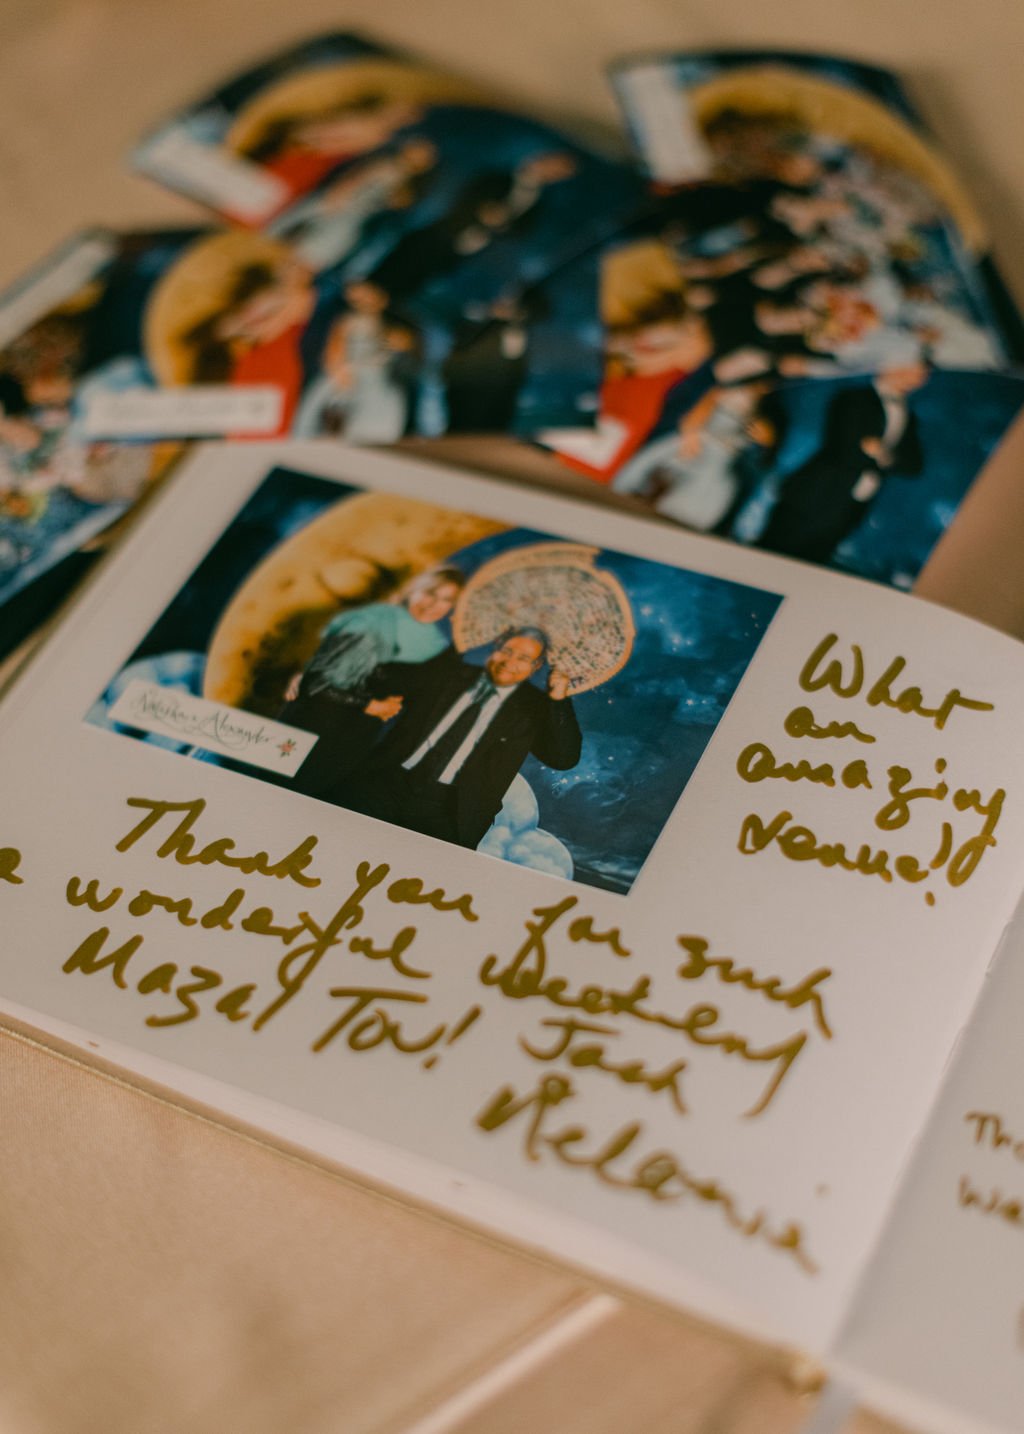 What
an
amazing
venue!
Thank you for such
a wonderful weekend
Mazal Tov! Josh
Melanie